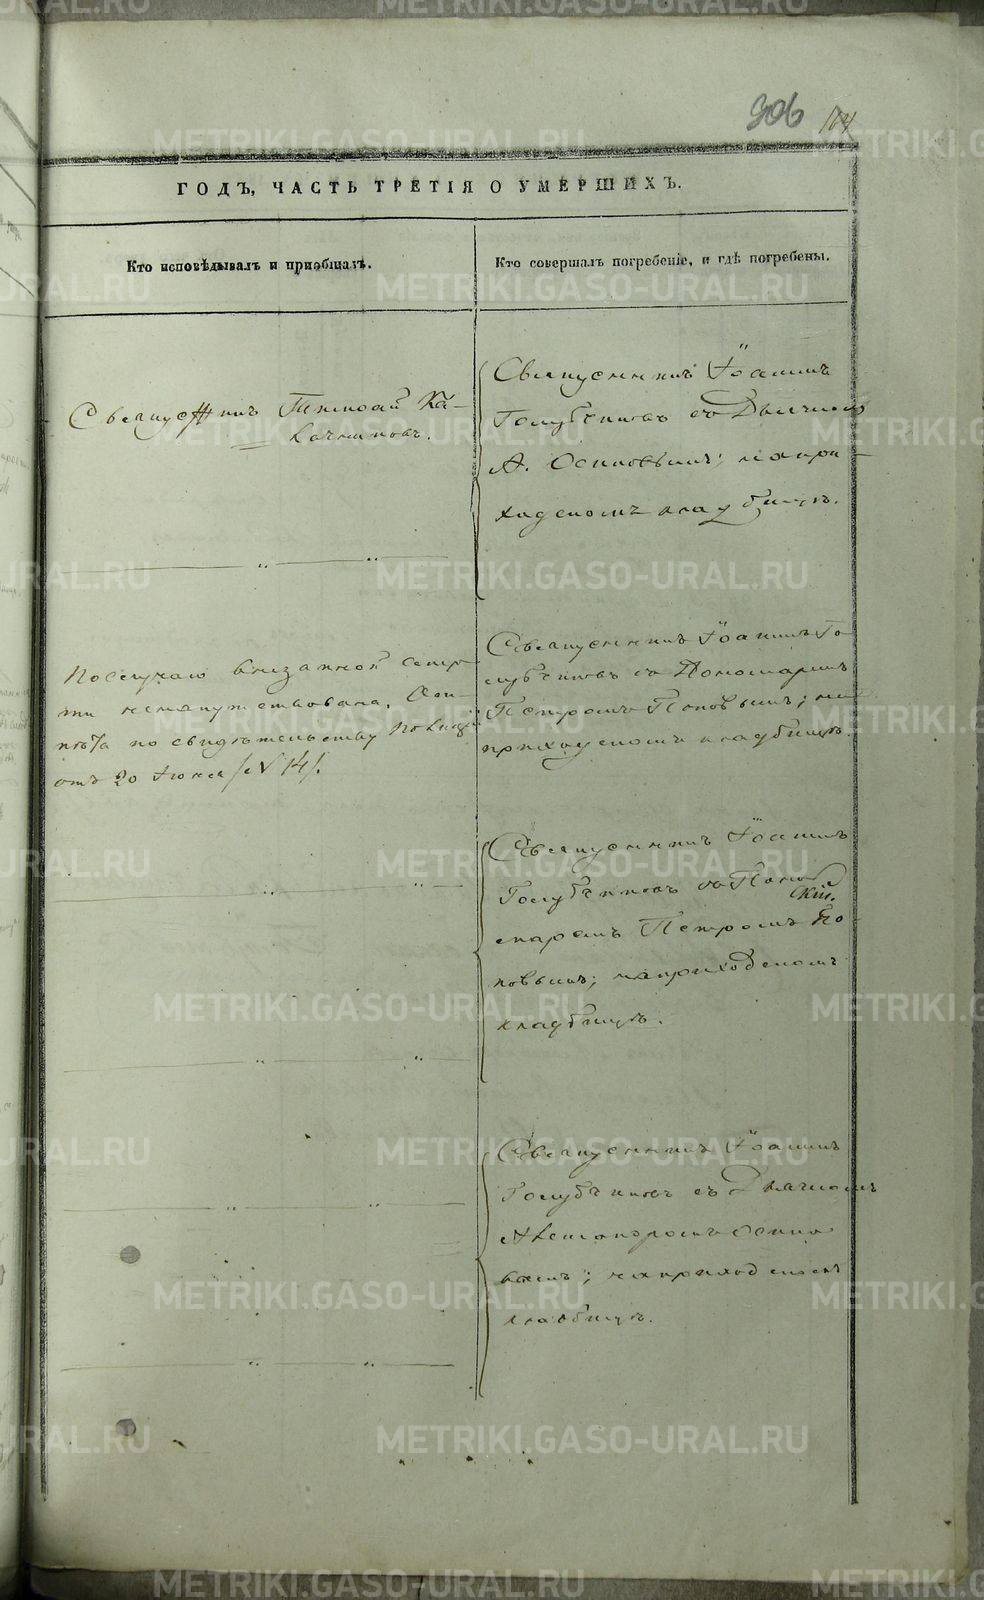 306 104
ГОДЪ, ЧАСТЬ ТРЕТІЯ О УМЕРШИХЪ.
Кто исповѣдывалъ и пріобщалъ.
Кто совершалъ погребеніе, и гдѣ погребены.
Священникъ Тимофей
Священникъ Іоаннъ
Голубчиковъ съ Дьячкомъ
А. Осиповымъ; на при-
ходскомъ кладбищѣ.
По случаю внезапной смер-
ти не напутствована. Отпѣта по свидѣтельству
отъ 20 Іюня /№ 14/.
Священникъ Іоаннъ Го-
лубчиковъ съ Пономаремъ
Петромъ Поповымъ; на
приходскомъ кладбищѣ.
Священникъ Іоаннъ
Голубчиковъ съ Поно-
маремъ Петромъ По-
повымъ; на приходскомъ
кладбищѣ.
Священникъ Іоаннъ
Голубчиковъ съ Дьячкомъ
Александромъ Осипо-
вымъ; на приходскомъ
кладбищѣ.
METRIKI.GASO-URAL.RU